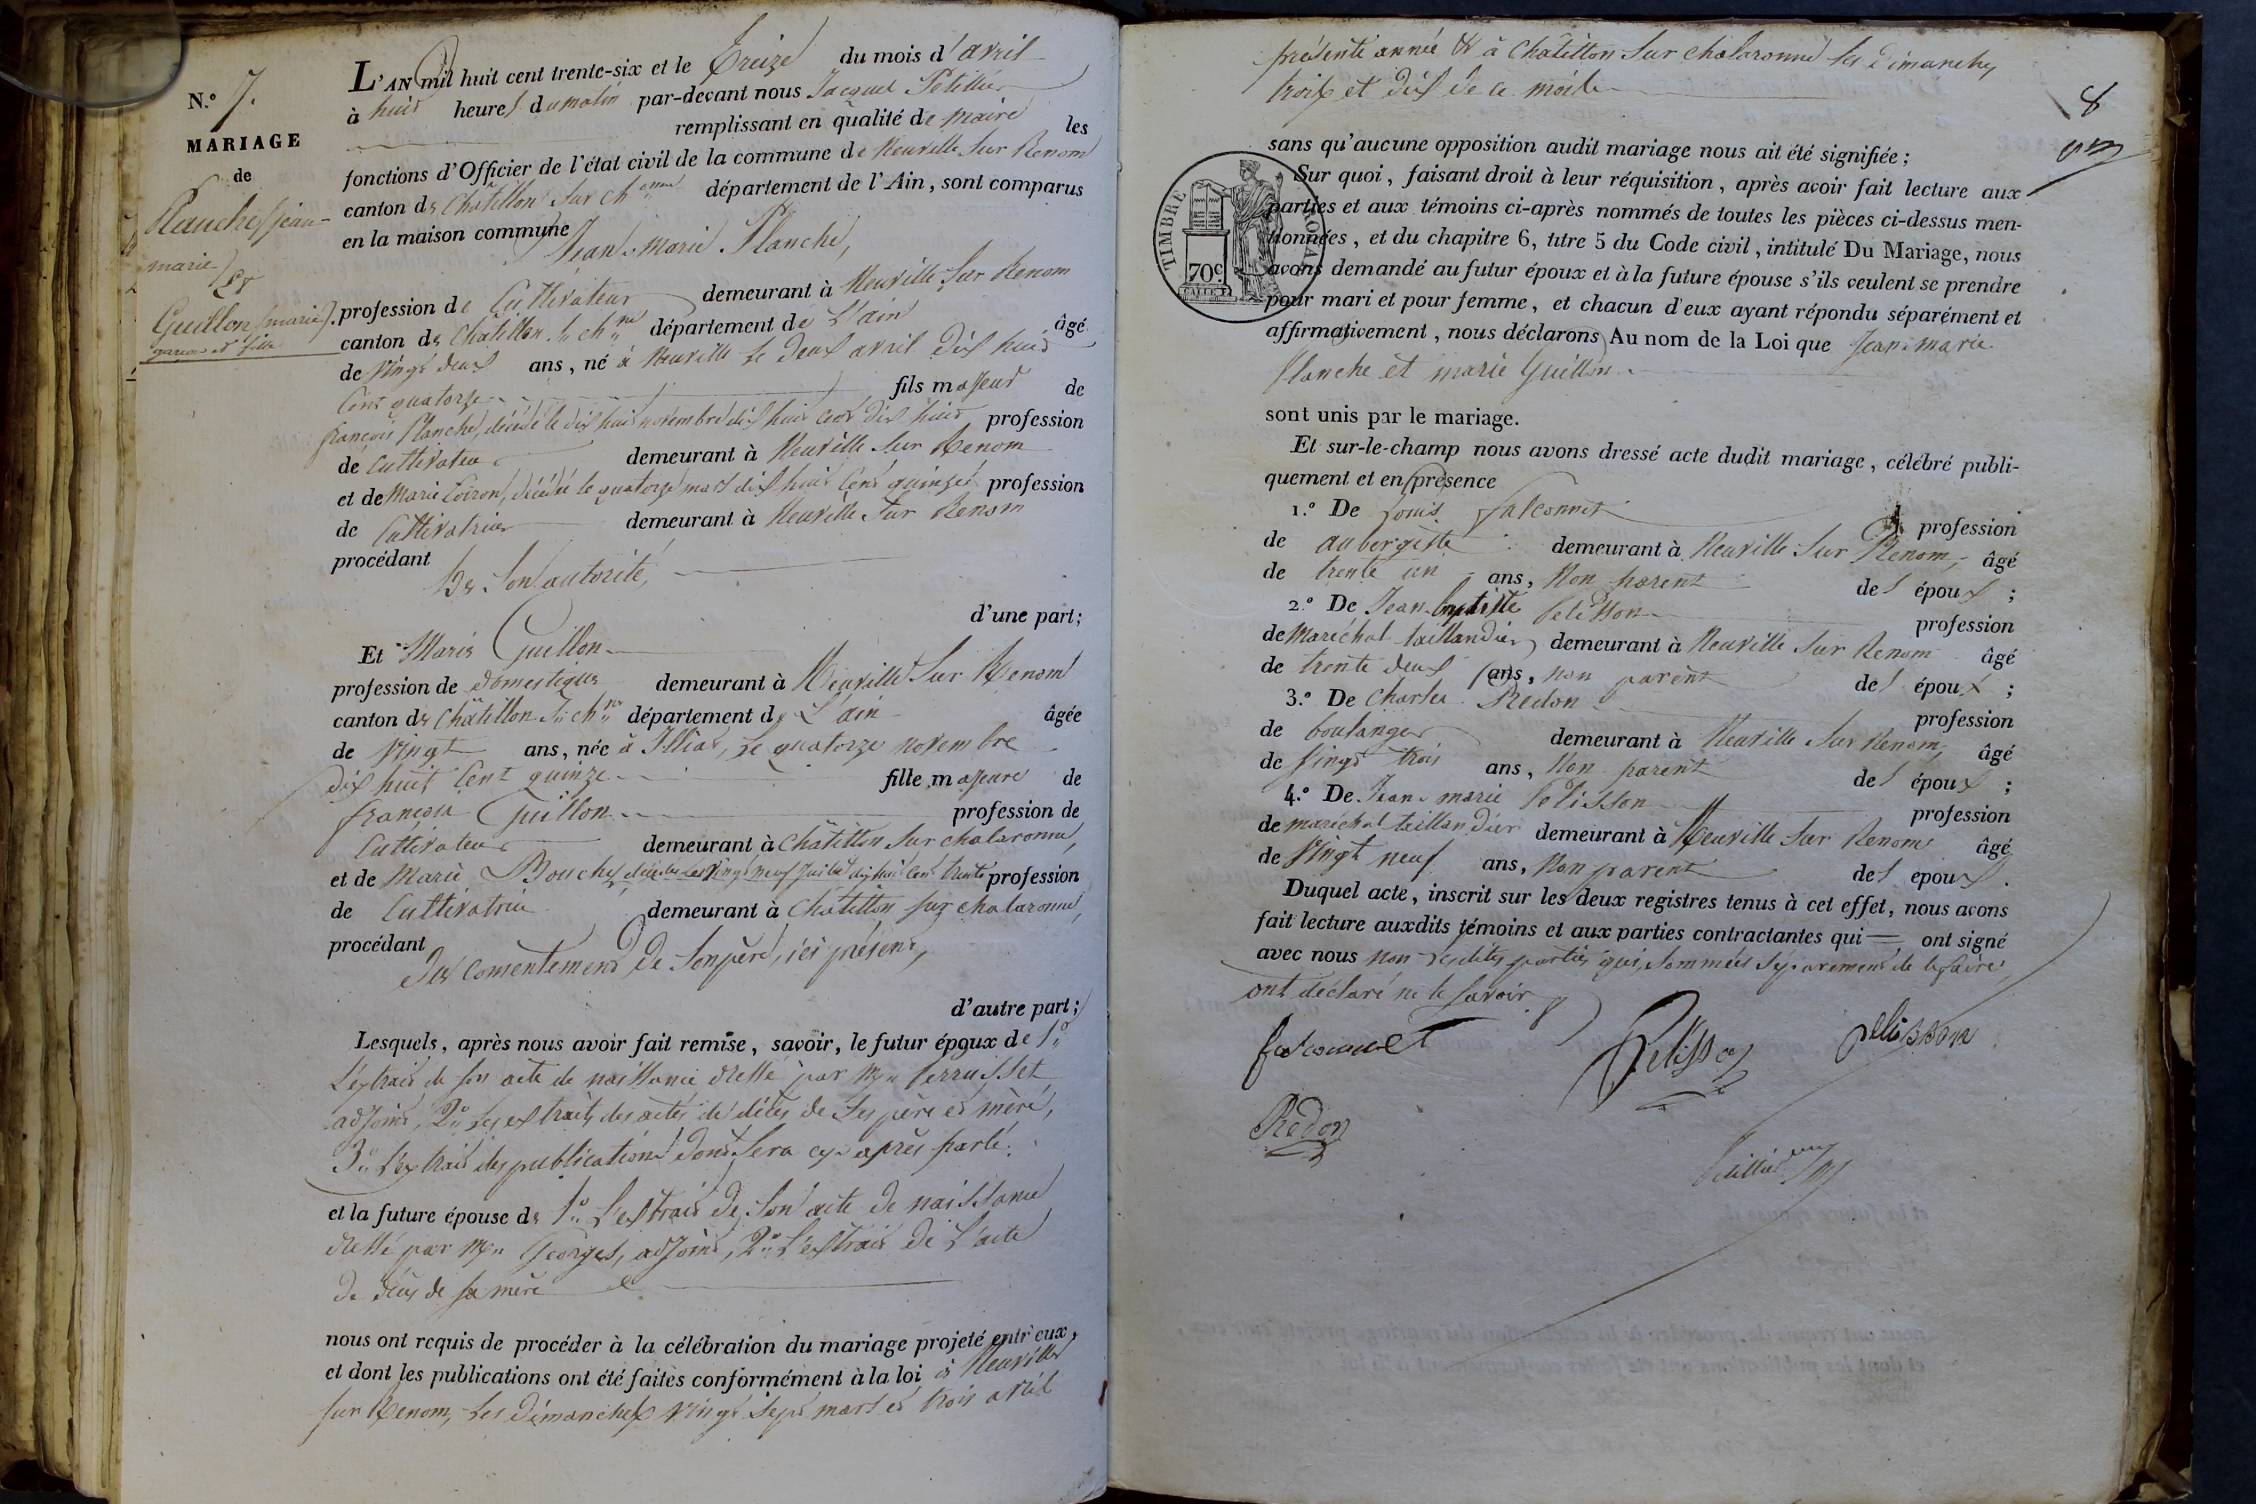 N.º 7.
MARIAGE
de
Planche / jean-
marie /
Et
Guillon / marie /.
garçon et fille
L'AN mil huit cent trente-six et le treize du mois d'avril
à huit heures du matin par-devant nous Jacques Pétillier
remplissant en qualité de maire les
fonctions d'Officier de l'état civil de la commune de Neuville Sur Renom
canton de Châtillon Sur Ch.onne département de l'Ain, sont comparus
en la maison commune
Jean-Marie Planche,
profession de Cultivateur demeurant à Neuville Sur Renom
canton de Châtillon S. ch.ne département de L'ain âgé
de Vingt deux ans, né à Neuville Le deux avril dix huit
Cent quatorze fils majeur de
françois Planche, décédé le dix huit novembre dix huit cent dix huit profession
de Cultivateur demeurant à Neuville Sur Renom
et de Marie Coiron, décédée le quatorze mars dix huit Cent quinze profession
de Cultivatrice demeurant à Neuville Sur Renom
procédant
De Son autorité,
d'une part;
Et Marie Guillon
profession de domestique demeurant à Neuville Sur Renom
canton de Châtillon S. ch.ne département de L'ain âgée
de Vingt ans, née à Illiat, Le quatorze novembre
dix huit Cent quinze fille majeure de
françois Guillon profession de
Cultivateur demeurant à Châtillon Sur chalaronne,
et de Marie Bouchy, décédée Le Vingt neuf Juillet dix huit Cent trente profession
de Cultivatrice demeurant à Châtillon sur chalaronne,
procédant
Du consentement de Son père, ici présent,
d'autre part;
Lesquels, après nous avoir fait remise, savoir, le futur époux de 1.º
L'extrait de Son acte de naissance dressé par M.r Perrusset
adjoint, 2.º Les extraits des actes de décès de Ses père et mère,
3.º L'extrait des publications dont Sera cy-après parlé.
et la future épouse de 1.º L'extrait de Son acte de naissance
dressé par M.r Georges, adjoint, 2.º L'extrait de L'acte
de décès de sa mère
nous ont requis de procéder à la célébration du mariage projeté entr'eux,
et dont les publications ont été faites conformément à la loi à Neuville
sur Renom, Les Dimanches Vingt Sept mars et trois avril
présente année & à Châtillon Sur chalaronne les Dimanches
trois et dix de ce mois
8
sans qu'aucune opposition audit mariage nous ait été signifiée;
Sur quoi, faisant droit à leur réquisition, après avoir fait lecture aux
parties et aux témoins ci-après nommés de toutes les pièces ci-dessus men-
tionnées, et du chapitre 6, titre 5 du Code civil, intitulé Du Mariage, nous
avons demandé au futur époux et à la future épouse s'ils veulent se prendre
pour mari et pour femme, et chacun d'eux ayant répondu séparément et
affirmativement, nous déclarons Au nom de la Loi que Jean-Marie
Planche et marie Guillon
TIMBRE ROYAL
70c
sont unis par le mariage.
Et sur-le-champ nous avons dressé acte dudit mariage, célébré publi-
quement et en présence
1.º De Louis Falconnet profession
de aubergiste demeurant à Neuville Sur Renom, âgé
de trente un ans, Non parent des époux ;
2.º De Jean-baptiste Pelisson profession
de Maréchal taillandier demeurant à Neuville Sur Renom âgé
de trente deux ans, non parent des époux ;
3.º De Charles Redon profession
de boulanger demeurant à Neuville Sur Renom, âgé
de Vingt trois ans, Non parent des époux ;
4.º De Jean-marie Pelisson profession
de maréchal taillandier demeurant à Neuville Sur Renom âgé
de Vingt neuf ans, Non parent des epoux.
Duquel acte, inscrit sur les deux registres tenus à cet effet, nous avons
fait lecture auxdits témoins et aux parties contractantes qui ont signé
avec nous non Lesdites parties qui, Sommées Séparément de le faire,
ont déclaré ne le Savoir
falconnet
Pelisson
pelisson
Redon
Pétillier